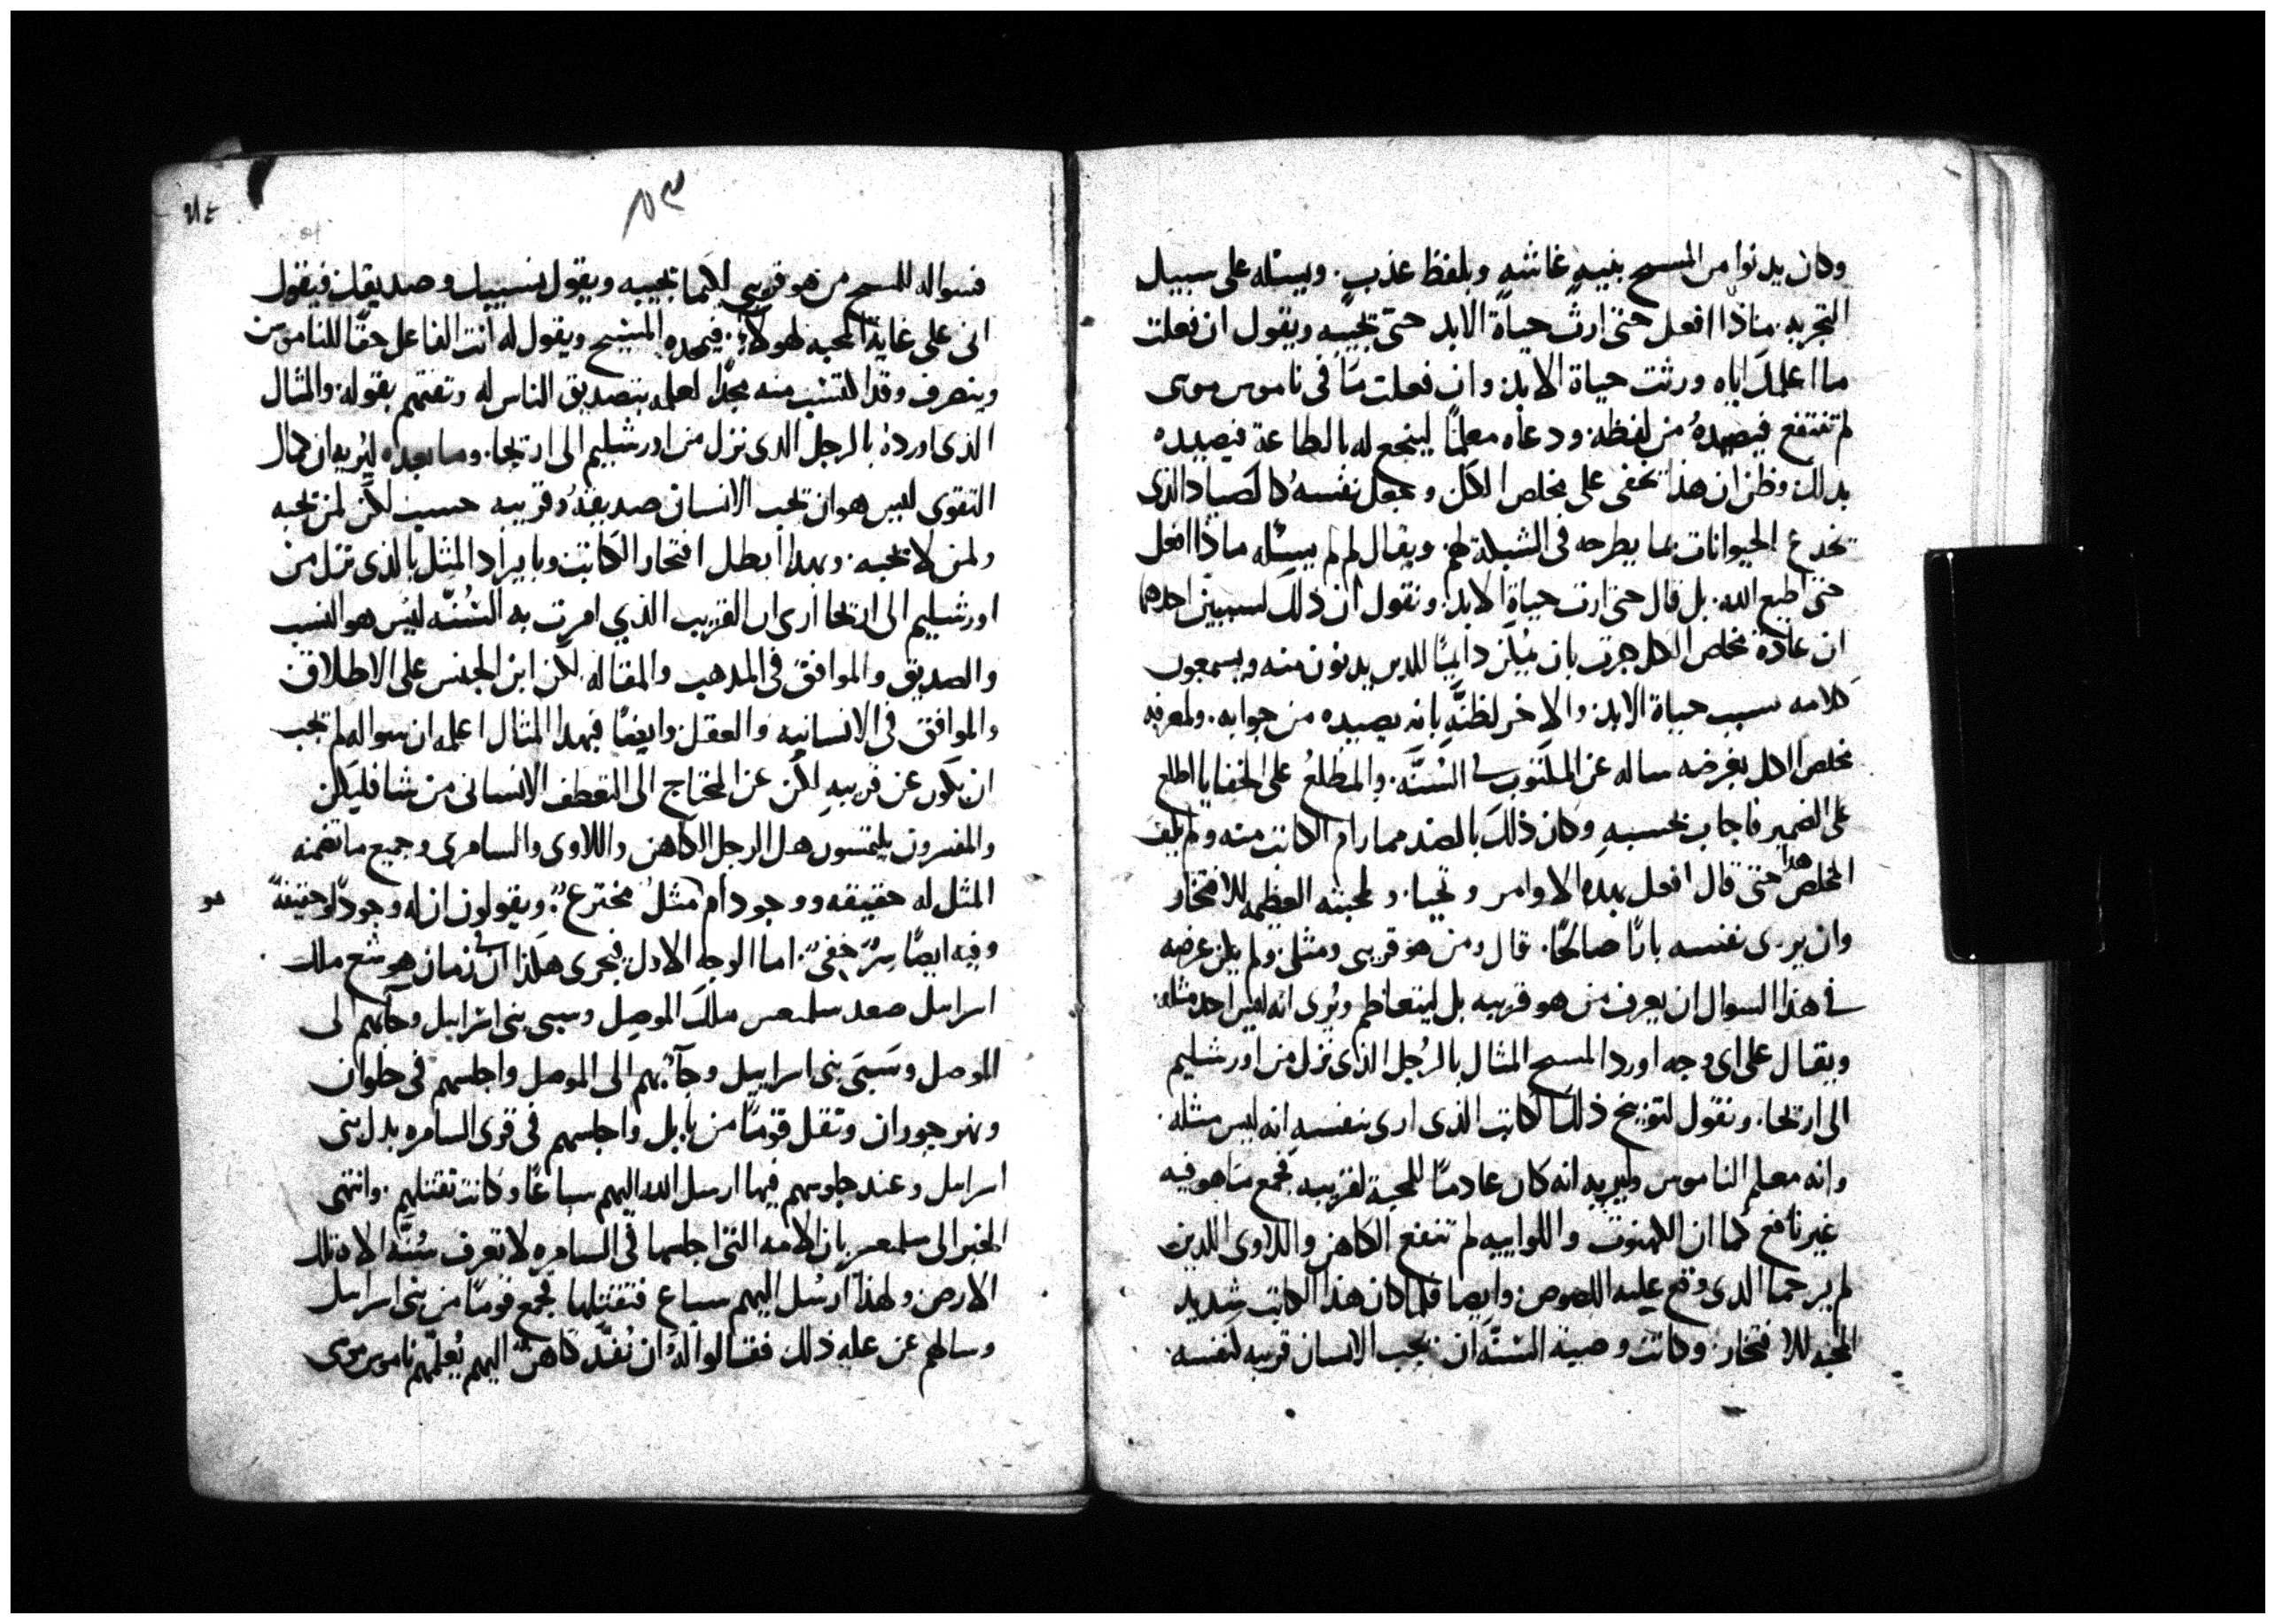 وكان يدنوا من المسيح بنيه غاشه وبلفظ عذب. ويسئله على سبيل
التجربه. ماذا افعل حتى ارث حياة الابد حتى يجيبه ويقول ان فعلت
ما اعلمك اياه ورثت حياة الابد. وان فعلت ما في ناموس موسى
لم تنتفع فيصيده من لفظه. ودعاه معلمًا لينجع له بالطاعة فيصيده
بدلك وظن ان هذا يخفى على مخلص الكل وجعل نفسه كالصياد الذي
يخدع الحيوانات بما يطرحه في الشبكة لهم. ويقال لم لم يسئله ماذا افعل
حتى اطيع الله. بل قال حتى ارث حياة الابد. ونقول ان ذلك لسببين احدهما
ان عادة مخلص الكل جرت بان يكرز دايمًا للدين يدنون منه ويسمعون
كلامه سبب حياة الابد. والاخر لظنه بانه يصيده من جوابه. ولمعرفة
مخلص الكل بغرضه ساله عن المكتوب في السُنَّه. والمطلع على الخفايا اطلع
على الضمير فاجاب بحسبه وكان ذلك بالضد مما رام الكاتب منه ولم يكف
المخلص هدا حتى قال افعل بهده الاوامر وتحيا. ولمحبته العظيمه للافتخار
وان يرى نفسه بارًا صالحًا. قال ومن هو قريبي ومثلي. ولم يكن غرضه
في هذا السوال ان يعرف من هو قريبه بل ليتعاظم ويُرى انه ليس احد مثله.
ويقال على اي وجه اورد المسيح المثال بالرُجل الذي نزل من اورشليم
الى اريحا. ونقول لتوبيخ ذلك الكاتب الذي ارى بنفسه انه ليس مثله.
وانه معلم الناموس وليريه انه كان عادمًا للمحبة لقريبه فجمع ما هو فيه
غير نافع كما ان الكهنوت واللواييه لم تنفع الكاهن واللاوى اللدين
لم يرحما الدى وقع عليه اللصوص. وايضا فلما كان هذا الكاتب شديد
المحبه للافتخار. وكانت وصية السُنَّه ان يحب الانسان قريبه لنفسه.
فسواله للمسيح من هو قريبي لكيما يجيبه ويقول نسيبك وصديقك فيقول
انى على غاية المحبه لهولاء. فيمحده المسيح ويقول له انت الفاعل حقًا للناموس
وينصرف وقد اكتسب منه مجدًا لعلمه بتصديق الناس له وثقتهم بقوله. والمثال
الذي اورده بالرجل الدى نزل من اورشليم الى اريحا. وما بعده ليُريه ان كمال
التقوى ليس هو ان يحب الانسان صديقهُ وقريبه حسب لكن لمن يحبه
ولمن لا يحبه. وبهدا ابطل افتخار الكاتب وبايراد المثل بالذى نزل من
اورشليم الى اريحا ارى ان القريب الذي امرت به السُنَّه ليس هو النسب
والصديق والموافق في المدهب والمقاله لكن ابن الجنس على الاطلاق
والموافق في الانسانيه والعقل وايضًا فبهدا المثال اعلمه ان سواله لم يجب
ان يكون عن قريبه لكن عن المحتاج الى التعطف الانسانى من شا فليكن
والمفسرون يلتمسون هل الرجل الكاهن واللاوى والسامري وجميع ما تضمنه
المثل له حقيقه ووجود ام مثل مخترع. ويقولون ان له وجودًا وحقيقةً
هو
وفيه ايضًا سرٌ خفيٌ. اما الوجه الاول فيجرى هكذا ان في زمان هوشع ملك
اسراييل صعد سلمعسر ملك الموصل وسبى بنى اسراييل وجآبهم الى
الموصل وسَبَى بنى اسراييل وجآبهم الى الموصل واجلسهم فى حلوان
ونهر جوران ونقل قومًا من بابل واجلسهم في قرى السامره بدل بنى
اسراييل وعند جلوسهم فيها ارسل الله اليهم سباعًا وكانت تقتلهم. وانتهى
الخبر الى سلمعسر بان الامه التي اجلسها في السامره لا تعرف سُنَّة الاه تلك
الارض ولهذا ارسل اليهم سباع فتقتلها فجمع قومًا من بنى اسراييل
وسالهم عن علة ذلك فقالوا لهُ ان نُفّد كاهن اليهم يُعلمّهم ناموس موسى